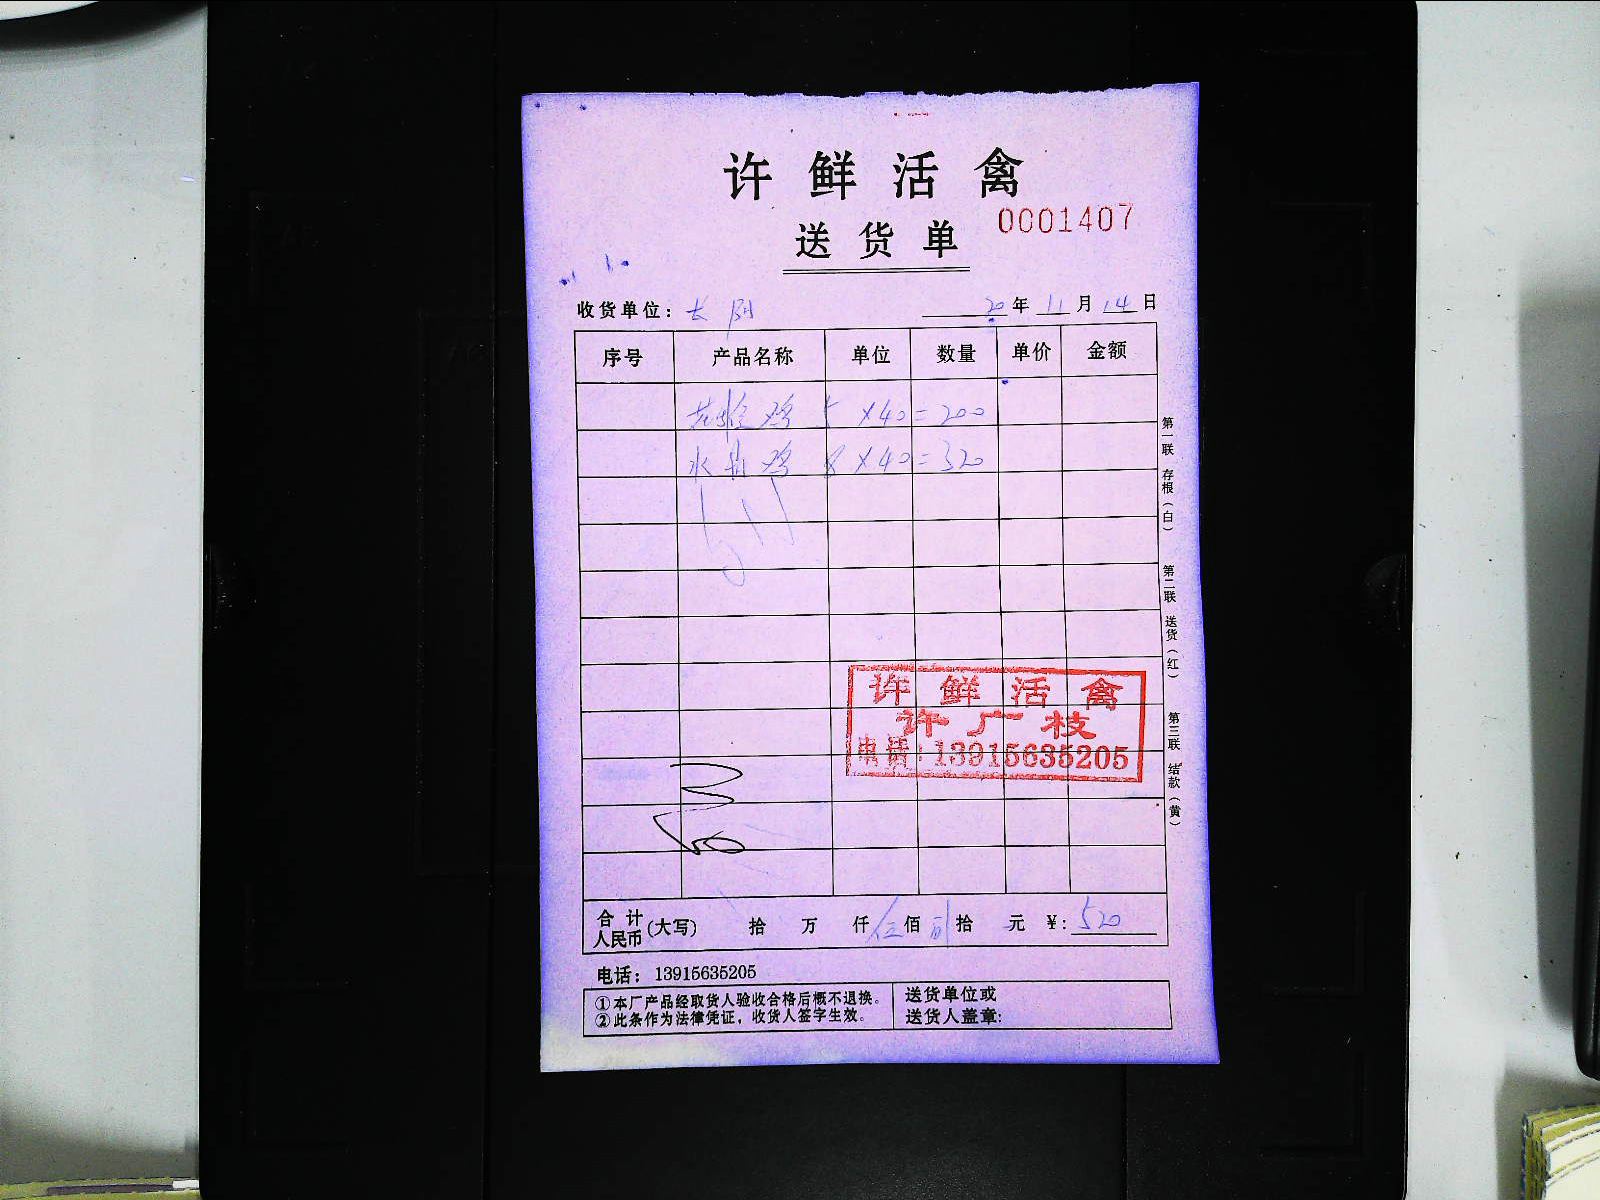 许鲜活禽
0001407
送货单
收货单位： 长阴 20年 11月 14日
序号 产品名称 单位 数量 单价 金额
鸡 5 ×40=200
水 鸡 8 ×40=320
第一联 存根（白） 第二联 送货（红） 第三联 结款（黄）
许鲜活禽
许广枝
电话：13915635205
合计人民币(大写) 拾 万 仟 伍佰 贰拾 元 ¥: 520
电话： 13915635205
①本厂产品经取货人验收合格后概不退换。
②此条作为法律凭证，收货人签字生效。
送货单位或
送货人盖章: